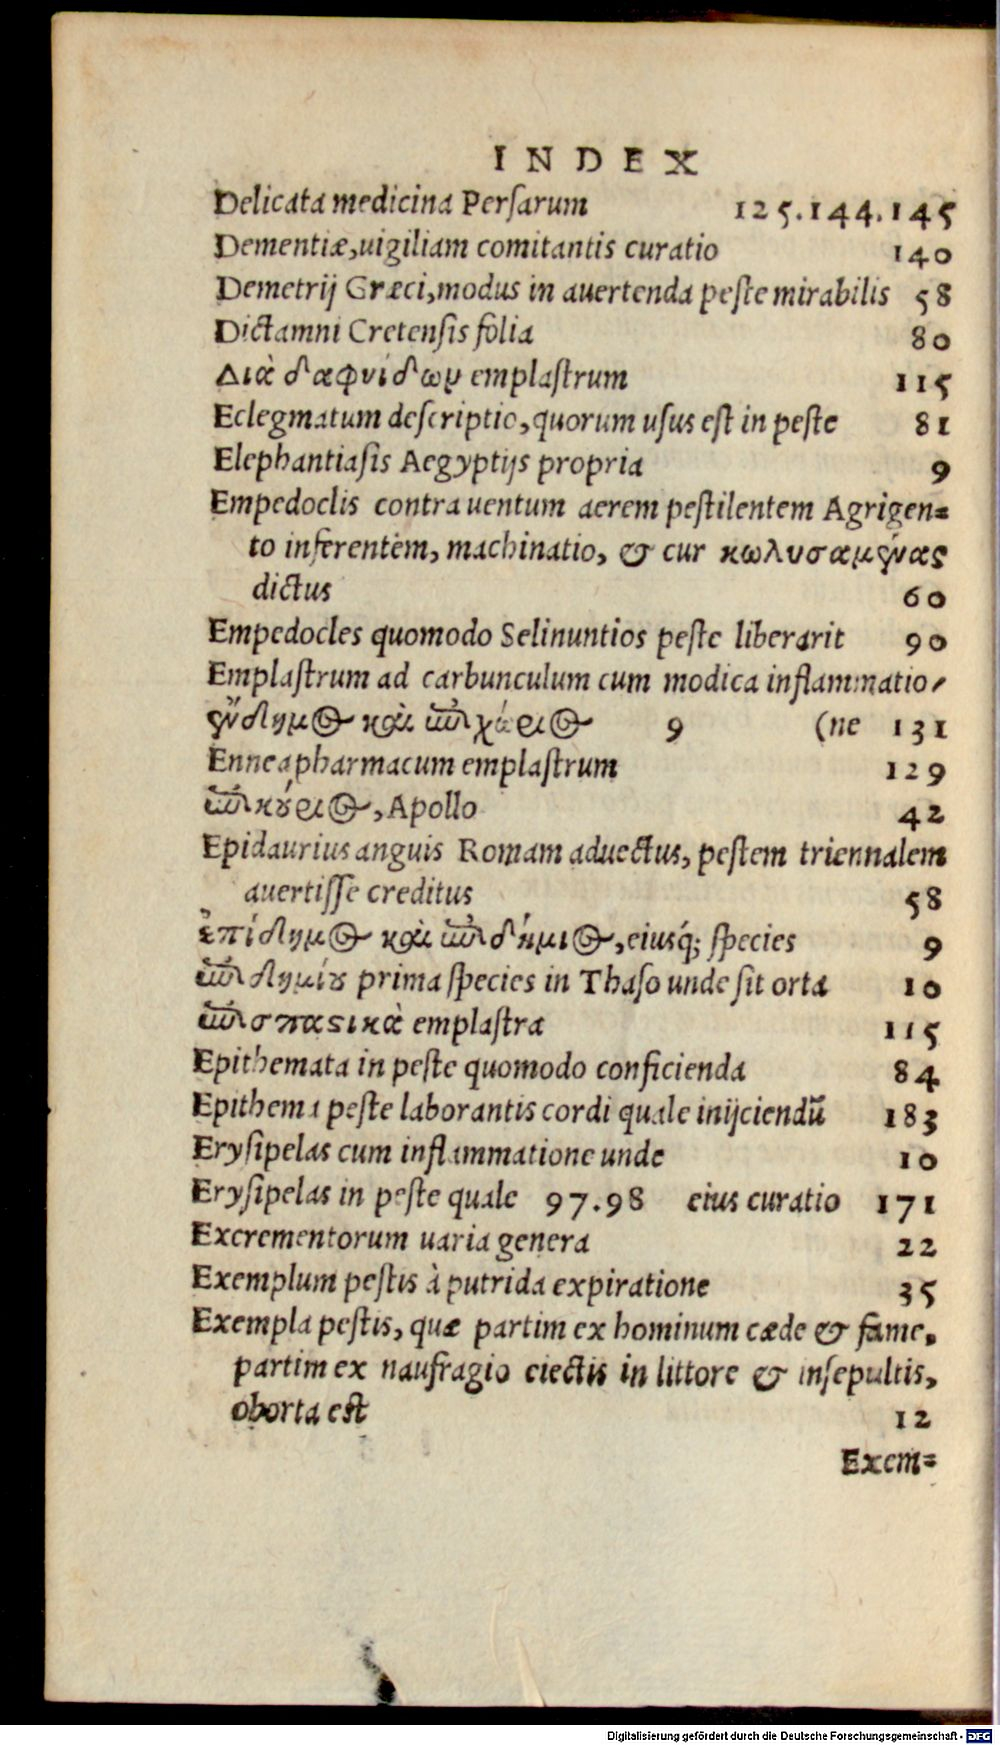 INDEX
Delicata medicina Persarum 125.144.145
Dementiæ,uigiliam comitantis curatio 140
Demetrij Græci,modus in auertenda peste mirabilis 58
Dictamni Cretensis folia 80
Διὰ δαφνίδων emplastrum 115
Eclegmatum descriptio,quorum usus est in peste 81
Elephantiasis Aegyptijs propria 9
Empedoclis contra uentum aerem pestilentem Agrigen=
to inferentem, machinatio, & cur κωλυσαμένας
dictus 60
Empedocles quomodo Selinuntios peste liberarit 90
Emplastrum ad carbunculum cum modica inflammatio/
ἔνδημος καὶ ἐπιχώριος 9 (ne 131
Enneapharmacum emplastrum 129
ἐπικούριος, Apollo 42
Epidaurius anguis Romam aduectus, pestem triennalem
auertisse creditus 58
ἐπίδημος καὶ ἐπιδήμιος,eiusq́; species 9
ἐπιδημίου prima species in Thaso unde sit orta 10
ἐπισπαστικὰ emplastra 115
Epithemata in peste quomodo conficienda 84
Epithema peste laborantis cordi quale inijciendū 183
Erysipelas cum inflammatione unde 10
Erysipelas in peste quale 97.98 eius curatio 171
Excrementorum uaria genera 22
Exemplum pestis à putrida expiratione 35
Exempla pestis, quæ partim ex hominum cæde & fame,
partim ex naufragio eiectis in littore & insepultis,
oborta est 12
Exem=
Digitalisierung gefördert durch die Deutsche Forschungsgemeinschaft - DFG